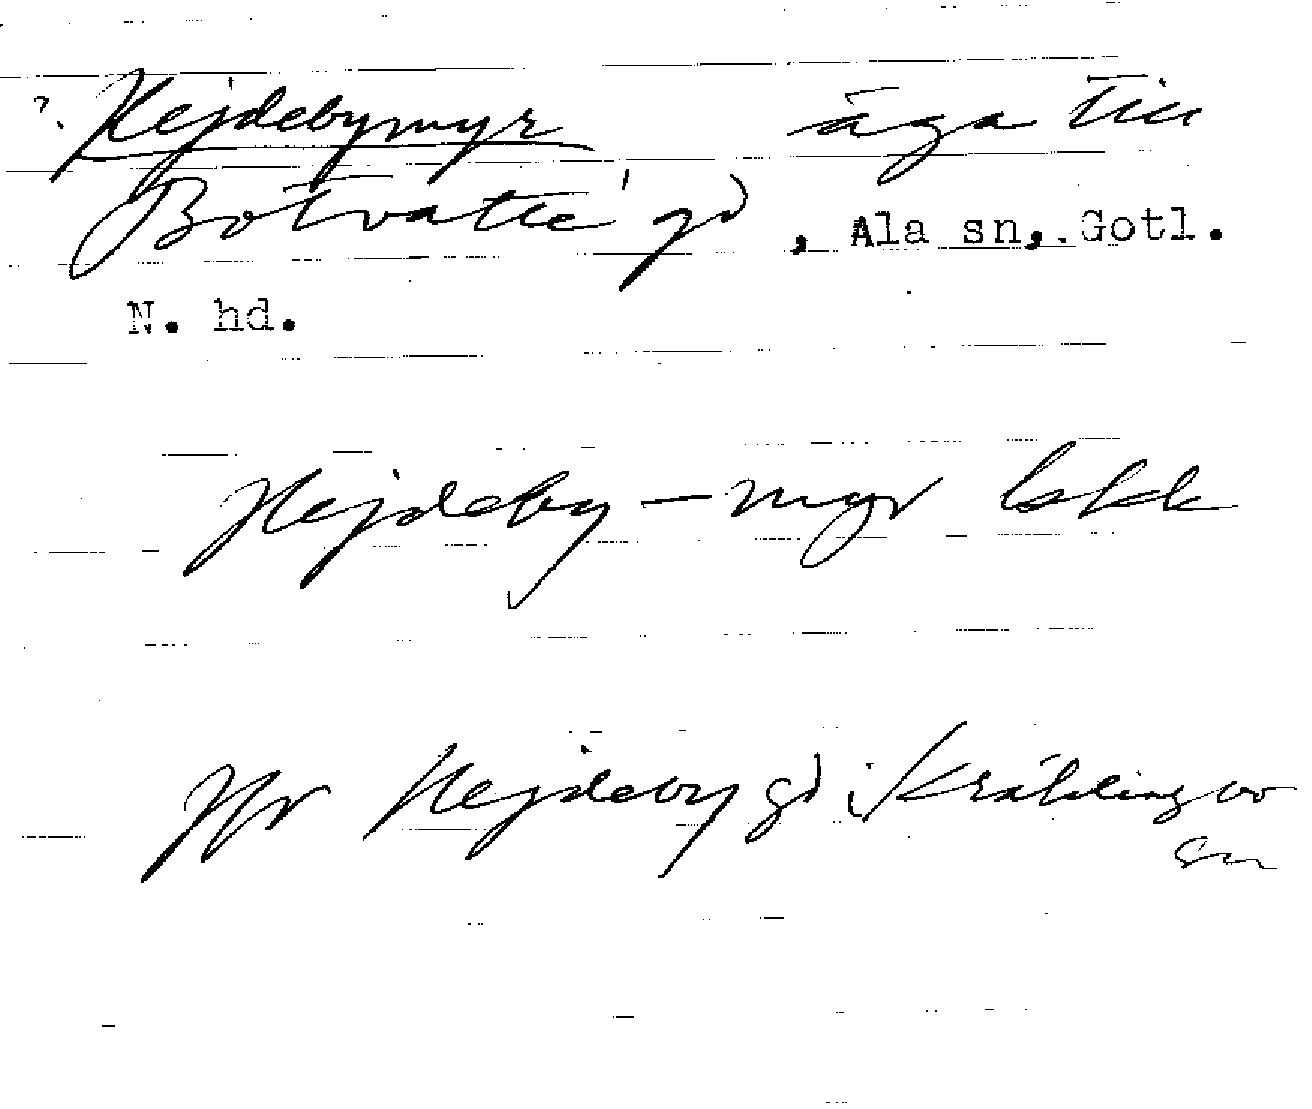 ?. Hejdebymyr äga till
Botvatte gd, Ala sn, Gotl.
N. hd.
Hejdeby - myr
Jfr Hejdeby gd i Kräklingbo
sn